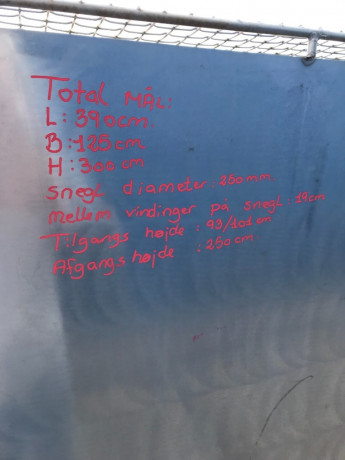 Total MÅL:
L: 390cm.
B: 125cm
H: 300cm
Snegl diameter 250mm
Mellem vindinger på snegl 19cm
Tilgangs højde : 93/101 cm
Afgangs højde : 250cm